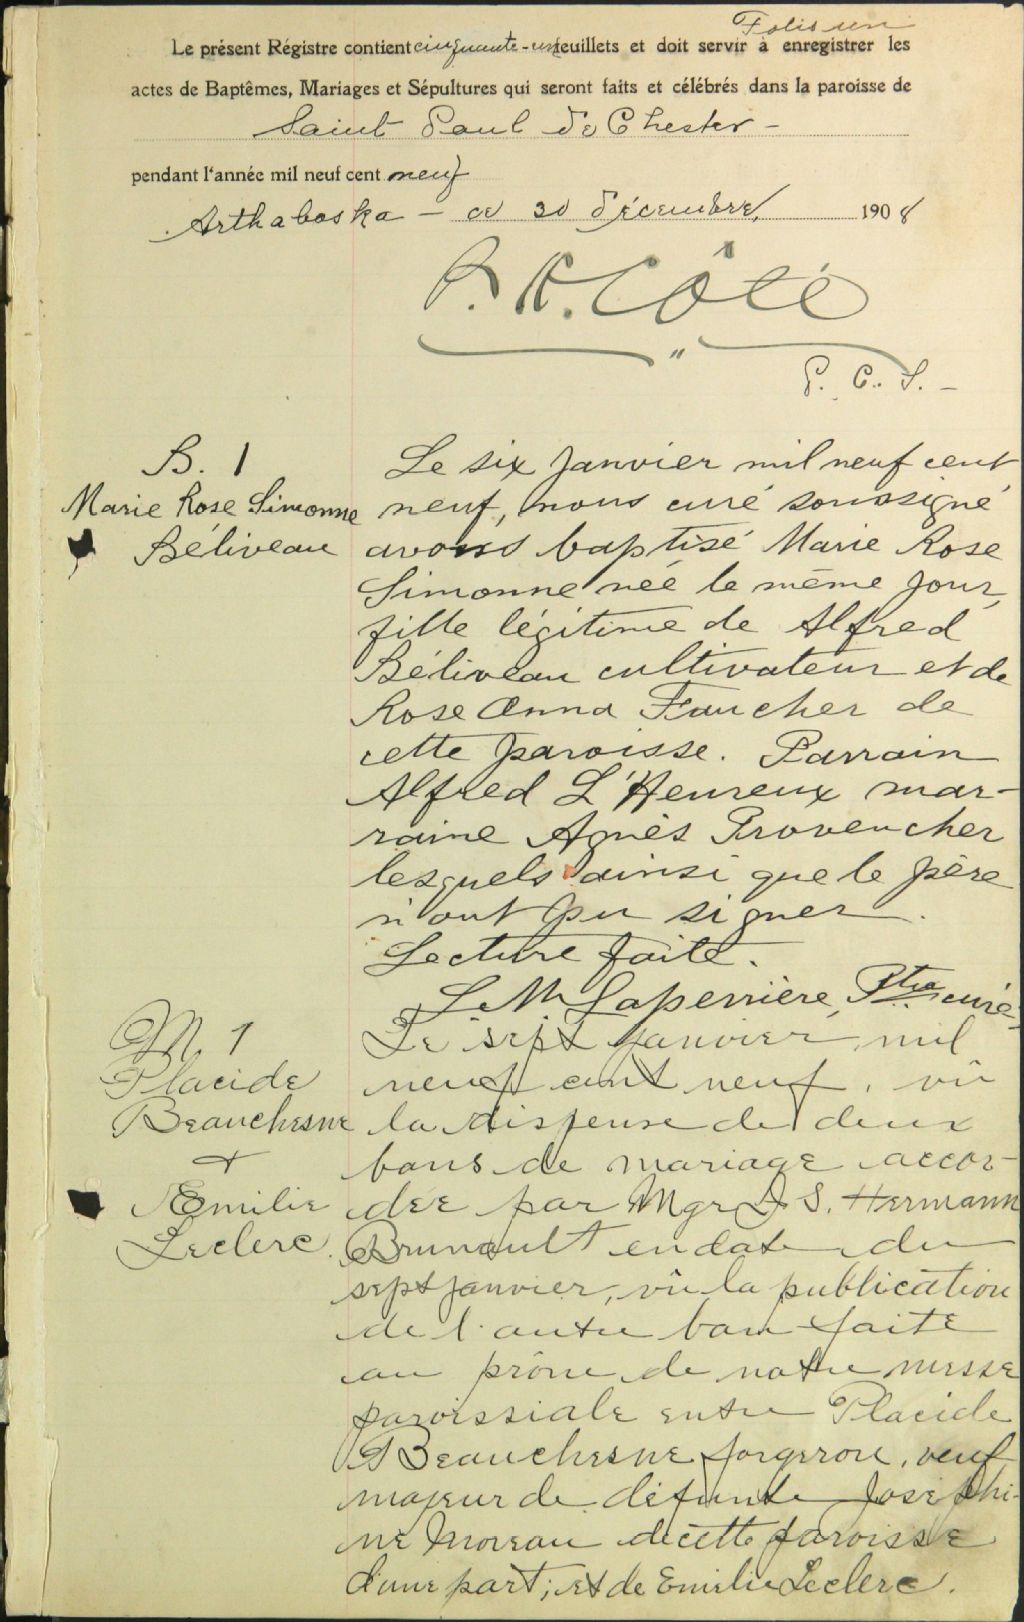 Folio un
Le présent Régistre contient cinquante-un feuillets et doit servir à enregistrer les
actes de Baptêmes, Mariages et Sépultures qui seront faits et célébrés dans la paroisse de
Saint Paul de Chester -
pendant l'année mil neuf cent neuf
Arthabaska - ce 30 décembre, 1908
P. H. Côté
P. C. S. -
B. 1
Marie Rose Simonne
Béliveau
Le six janvier mil neuf cent
neuf, nous curé soussigné
avons baptisé Marie Rose
Simonne née le même jour,
fille légitime de Alfred
Béliveau cultivateur et de
Rose Anna Faucher de
cette paroisse. Parrain
Alfred L'Heureux mar-
raine Agnès Provencher
lesquels ainsi que le père
n'ont pu signer.
Lecture faite.
L. M. Laperrière, Ptre curé
M. 1
Placide
Beauchesne
+
Emilie
Leclerc.
Le sept janvier mil
neuf cent neuf, vû
la dispense de deux
bans de mariage accor-
dée par Mgr J. S. Hermann
Brunault en date du
sept janvier, vû la publication
de l'autre ban faite
au prône de notre messe
paroissiale entre Placide
Beauchesne forgeron, veuf
majeur de défunte Joséphi-
ne Moreau de cette paroisse
d'une part; et de Emilie Leclerc.